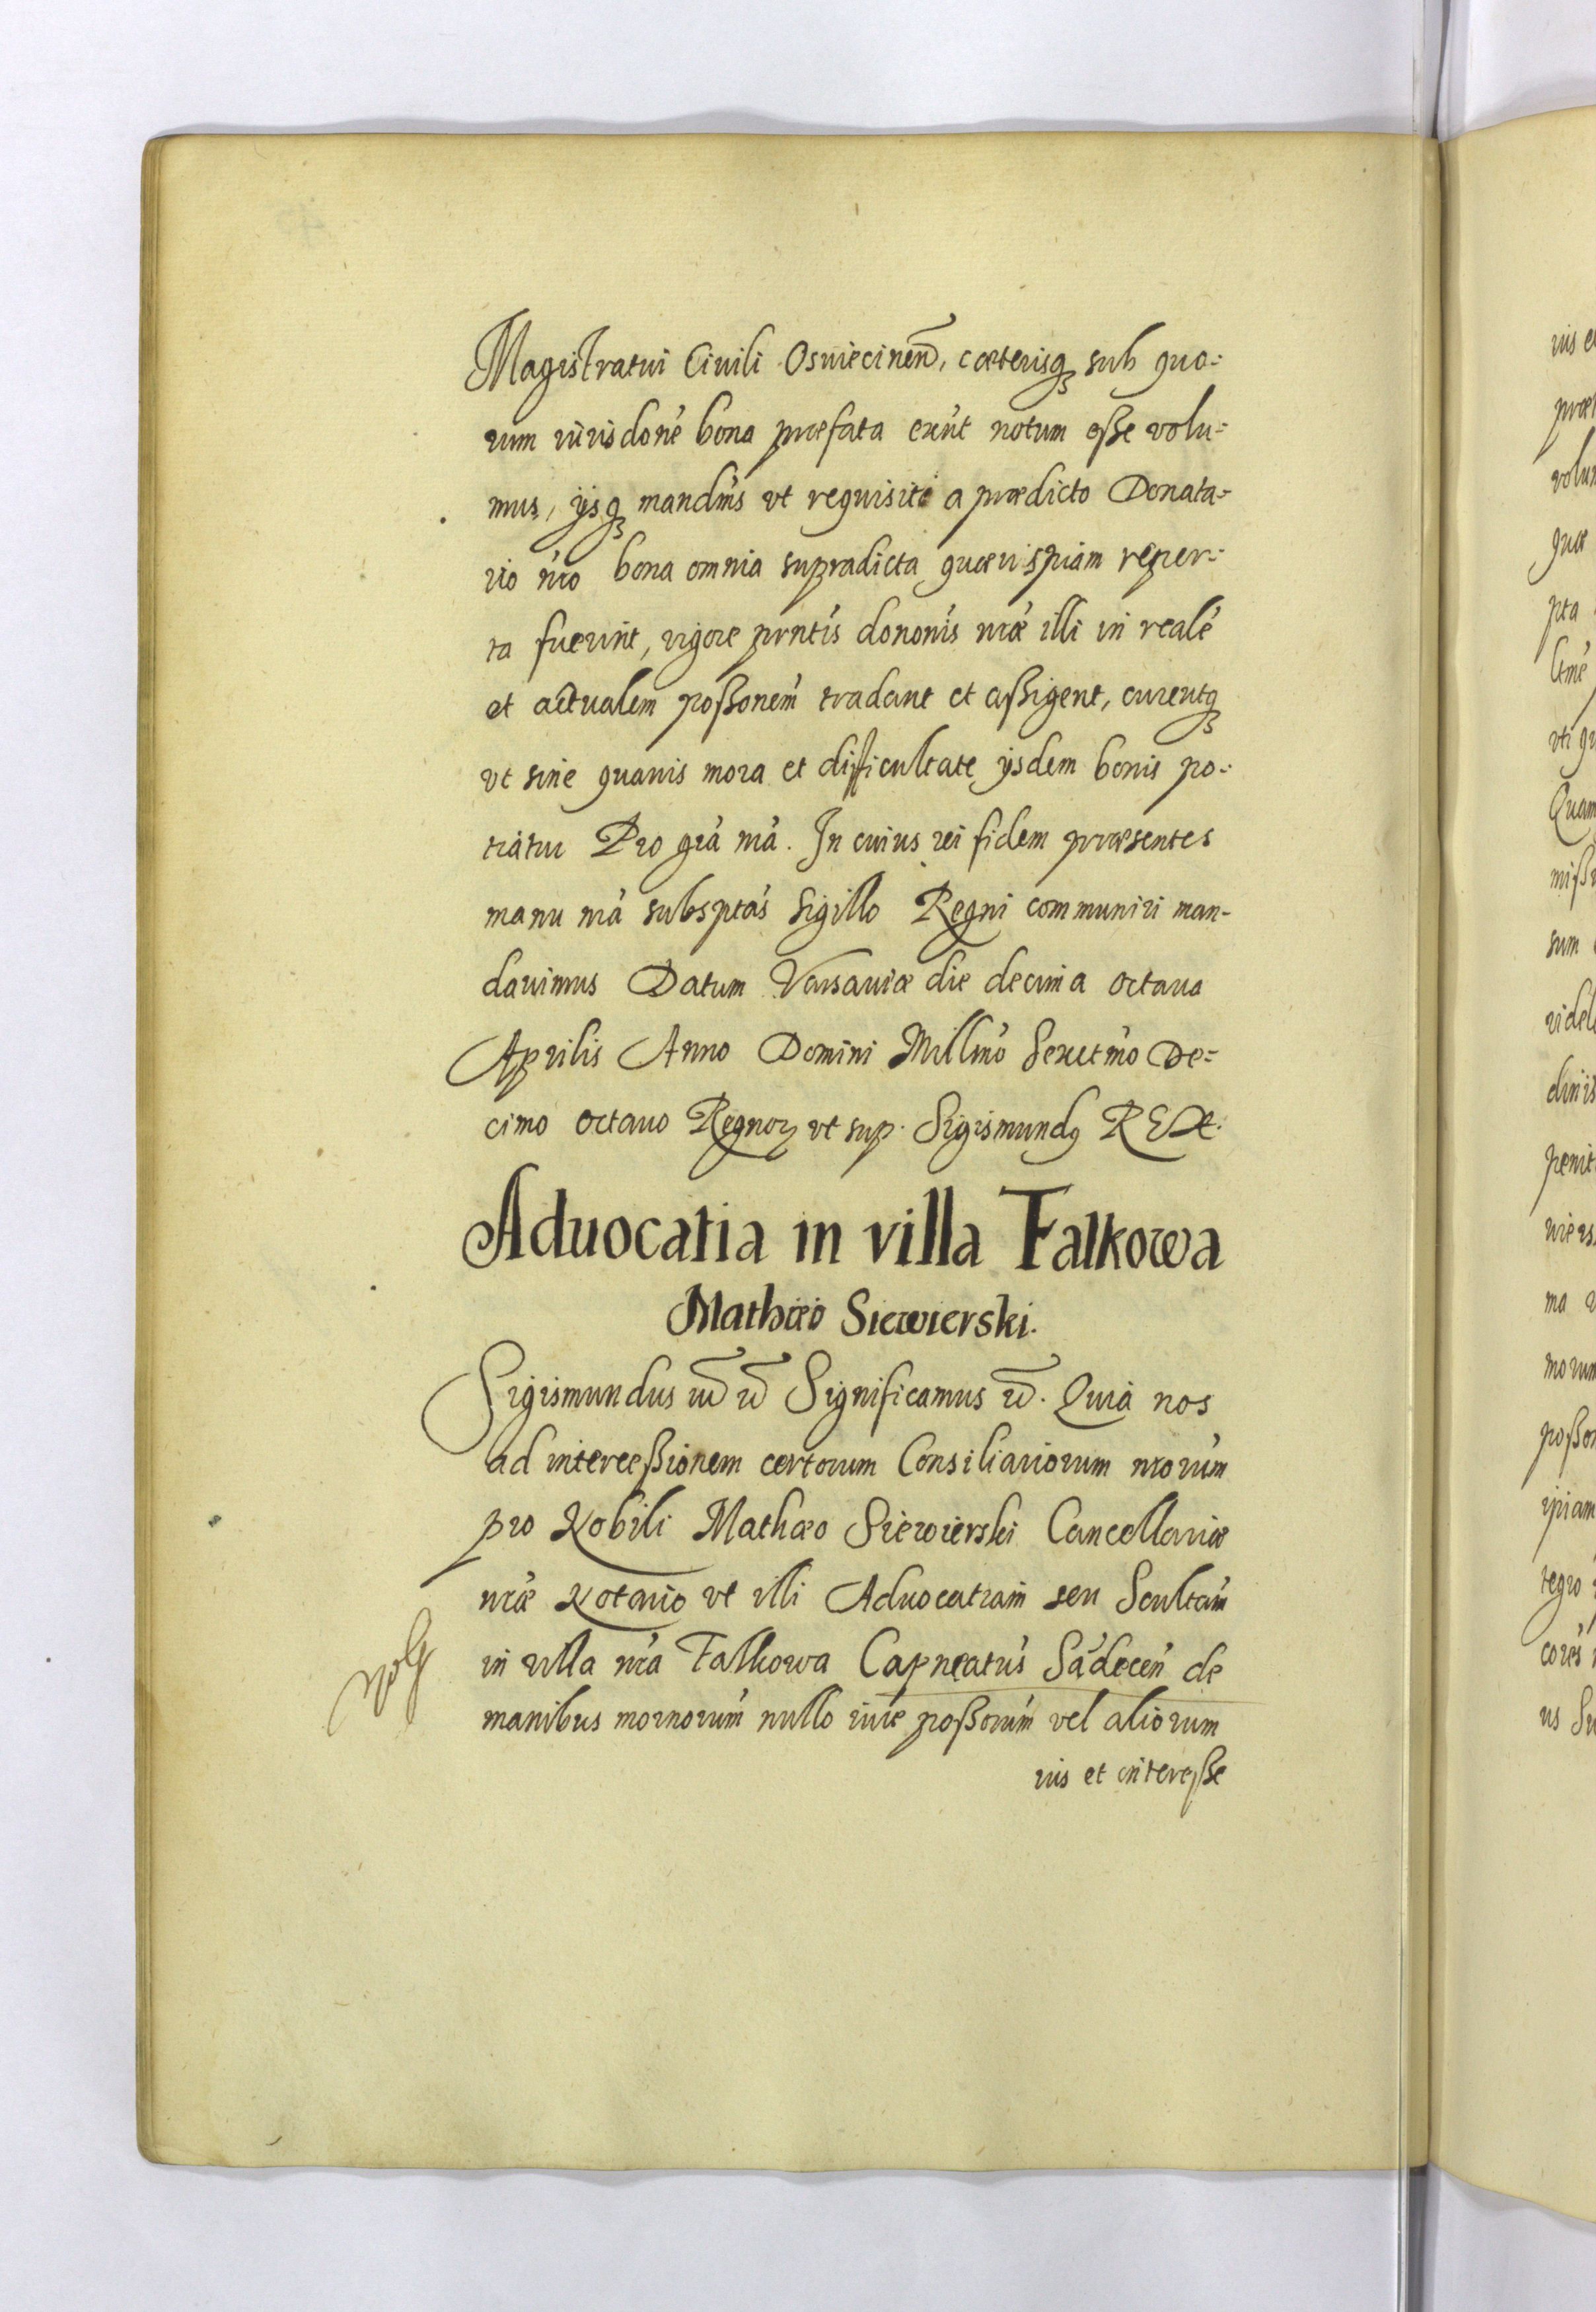 Magistratui Ciuili Osuiecinen, cæterisq sub quo-
rum iurisdone bona præfata erunt notum esse volu-
mus, ijsq mandms vt requisiti a prædicto Donata-
rio nro bona omnia supradicta quæuispiam reper-
ta fuerint, vigore prntis dononis nræ illi in reale
et actualem possonem tradant et assignent, curentq
vt sine quauis mora et difficultate ijsdem bonis po-
tiatur Pro gra nra. In cuius rei fidem præsentes
manu nra subsptas Sigillo Regni communiri man-
dauimus Datum Varsauiæ die decima octaua
Aprilis Anno Domini Millmo Sexctmo De-
cimo octauo Regnor vt sup. Sigismundq REX.
Aduocatia in villa Falkowa
Mathæo Siewierski.
Sigismundus Significamus Quia nos
ad intercessionem certorum Consiliariorum nrorum
pro Nobili Mathæo Siewierski Cancellariæ
nræ Notario vt illi Aduocatiam seu Scultam
in villa nra Falkowa Capneatus Sadecen de
manibus mornorum nullo iure possorum vel aliorum
ius et interesse